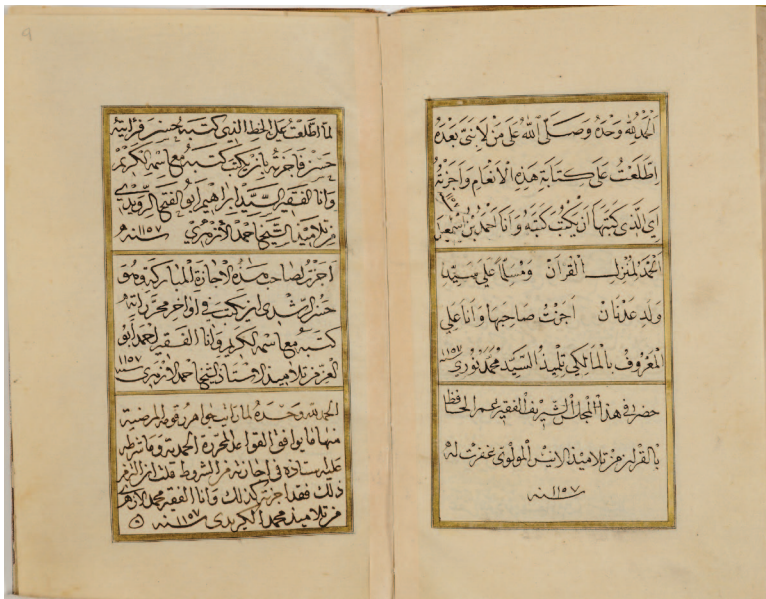 الحمد لله وحده وصلى الله على من لا نبي بعده
اطلعت على كتابة هذه الانعام واجزته
اي الذي كتبها ان يكتب كتبه وانا احمد بن اسمعيل ١١٥٧
الحمد لمنزل القرآن ومسلما على سيد
ولد عدنان اجزت صاحبها وانا علي
المعروف بالمالكي تلميذ السيد محمد نوري ١١٥٧
حضر في هذا المجلس الشريف الفقير عمر الحافظ
بالقرا من تلاميذ الانيس المولوي غفرت له
سنه ١١٥٧
لما اطلعت على الخط الذي كتبه حسن فرأيته
حسن فاجزته بان يكتب كتبه مع اسمه الكريم
وانا الفقير السيد ابراهيم ابو الفتح الرويدي
من تلاميذ الشيخ احمد الازميري سنه ١١٥٧
اجزت لصاحب هذه الاجازة المباركة وهو
حسن الرشدي ان يكتب في اواخر محرراته
كتبه مع اسمه الكريم وانا الفقير احمد ابو
العز من تلاميذ الاستاذ الشيخ احمد الازميري سنه ١١٥٧
الحمد لله وحده لما تأملت جواهر رقومه المرضية
منها ما يوافق القواعد المحررة الحمدية وما شرطه
عليه استاذه في اجازته من الشروط قلت
ذلك فقد اجزته كذلك وانا الفقير محمد الازهري
من تلاميذ محمد الكريدي سنه ١١٥٧